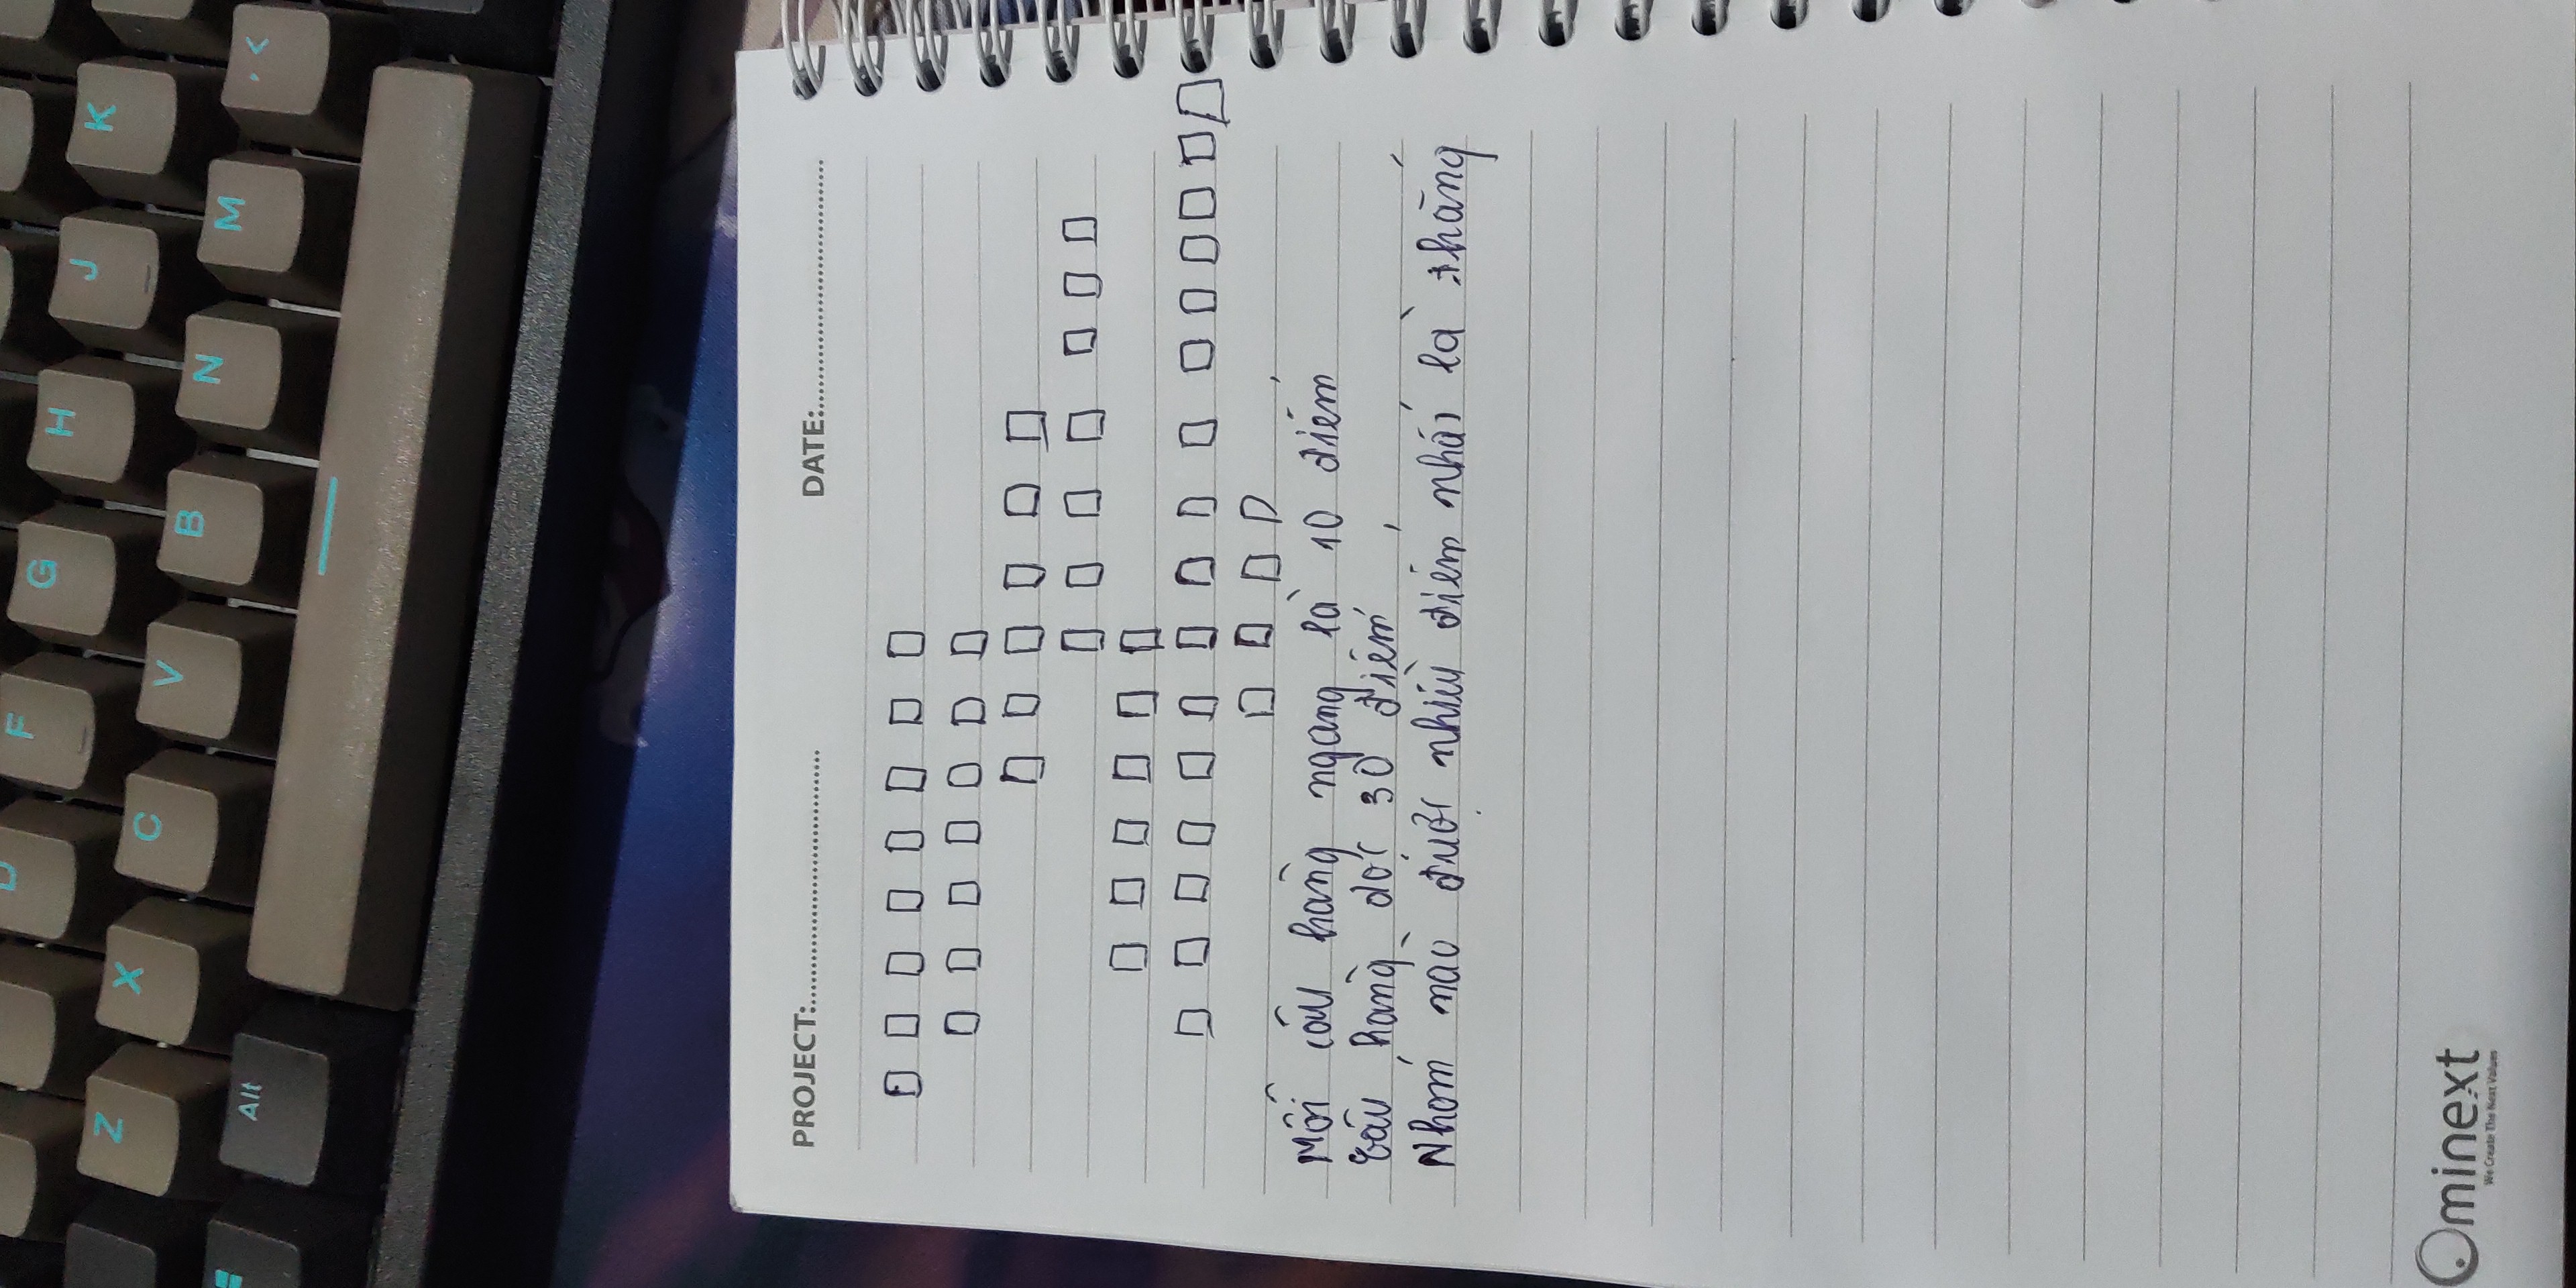 D F G H J K
Z X C V B N M , <
Alt
PROJECT:.................................... DATE:....................................
Mỗi câu hàng ngang là 10 điểm
Câu hàng dọc 30 điểm
Nhóm nào được nhiều điểm nhất là thắng
Ominext
We Create The Next Values